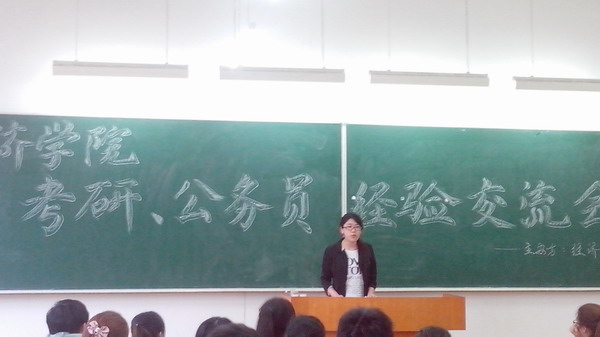 济学院
考研、公务员 经验交流会
——主办方：经济